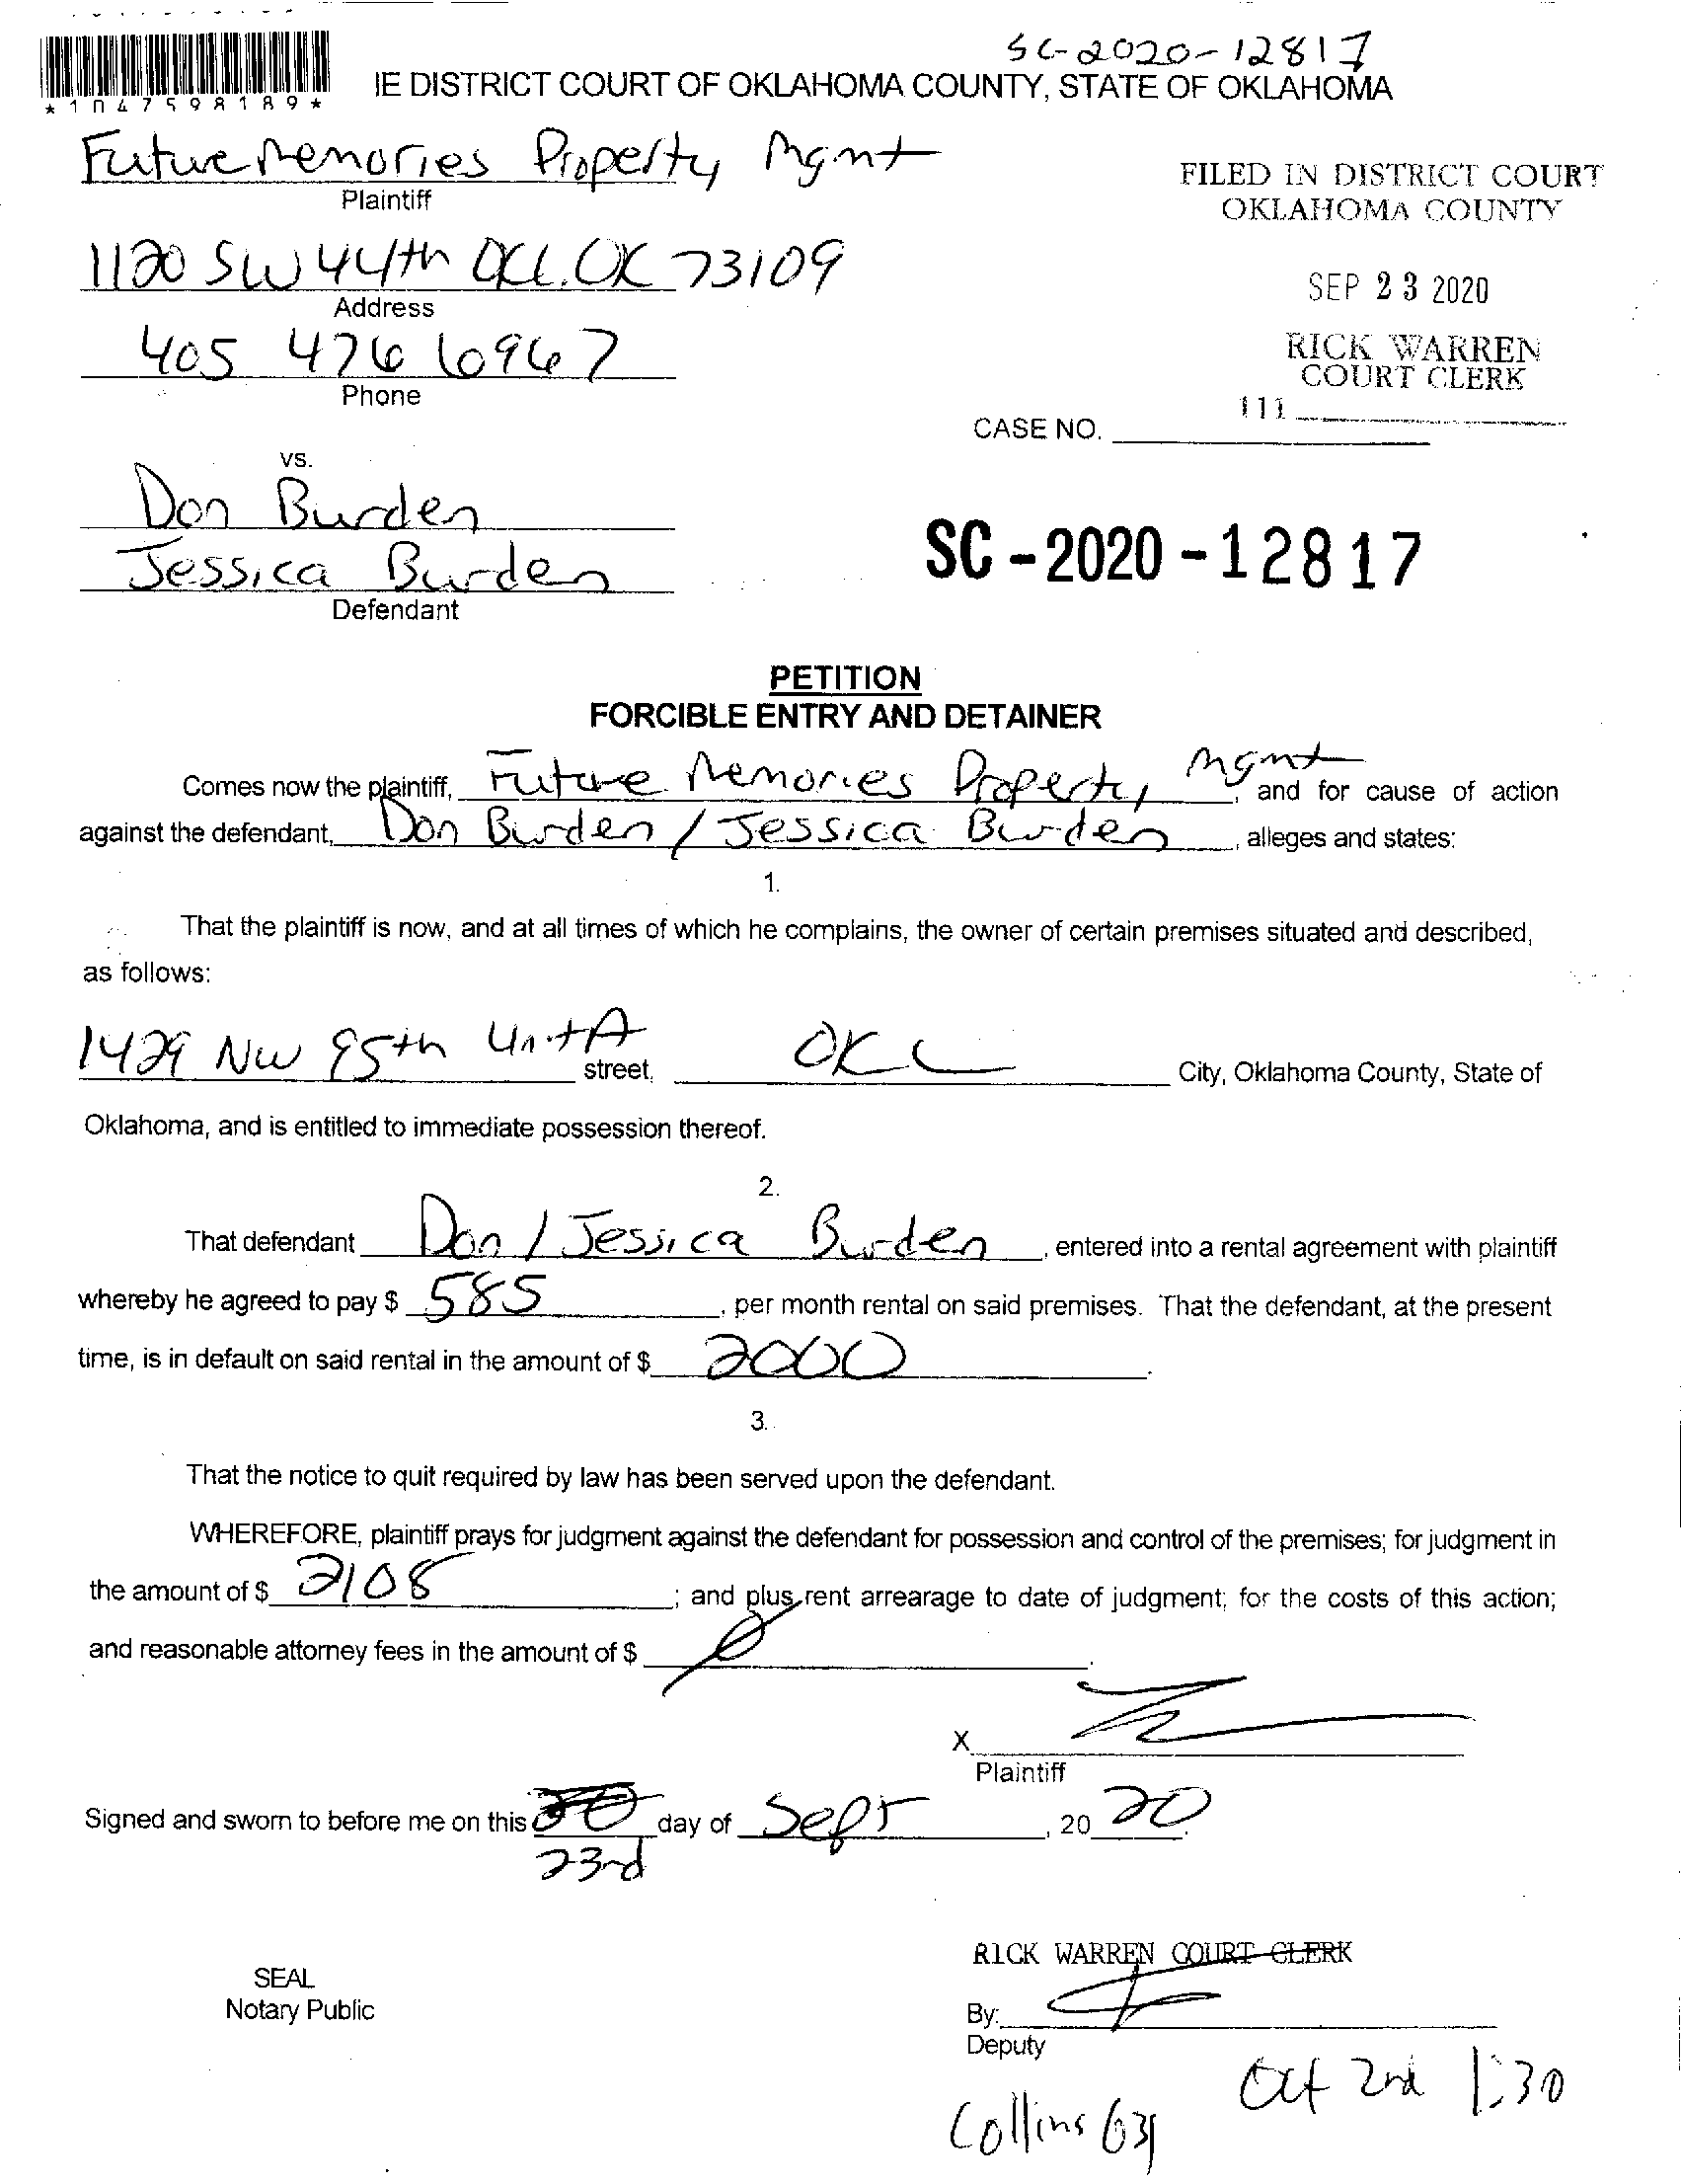 SC-2020-12817
*1047598189*
IE DISTRICT COURT OF OKLAHOMA COUNTY, STATE OF OKLAHOMA
Future Memories Property Mgmt
Plaintiff
FILED IN DISTRICT COURT
OKLAHOMA COUNTY
1120 SW 44th OKC. OK 73109
Address
SEP 23 2020
405 476 6967
Phone
RICK WARREN
COURT CLERK
111
CASE NO.
vs.
Don Burden
Jessica Burden
Defendant
SC-2020-12817
PETITION
FORCIBLE ENTRY AND DETAINER
Comes now the plaintiff, Future Memories Property Mgmt, and for cause of action
against the defendant, Don Burden / Jessica Burden, alleges and states:
1.
That the plaintiff is now, and at all times of which he complains, the owner of certain premises situated and described,
as follows:
1429 NW 95th Unit A street, OKC City, Oklahoma County, State of
Oklahoma, and is entitled to immediate possession thereof.
2.
That defendant Don / Jessica Burden, entered into a rental agreement with plaintiff
whereby he agreed to pay $ 585, per month rental on said premises. That the defendant, at the present
time, is in default on said rental in the amount of $ 2000.
3.
That the notice to quit required by law has been served upon the defendant.
WHEREFORE, plaintiff prays for judgment against the defendant for possession and control of the premises; for judgment in
the amount of $ 2108; and plus rent arrearage to date of judgment; for the costs of this action;
and reasonable attorney fees in the amount of $ 0.
X
Plaintiff
Signed and sworn to before me on this day of Sept, 20 20.
23rd
SEAL
Notary Public
RICK WARREN COURT CLERK
By:
Deputy
Oct 2nd 1:30
Collins 631